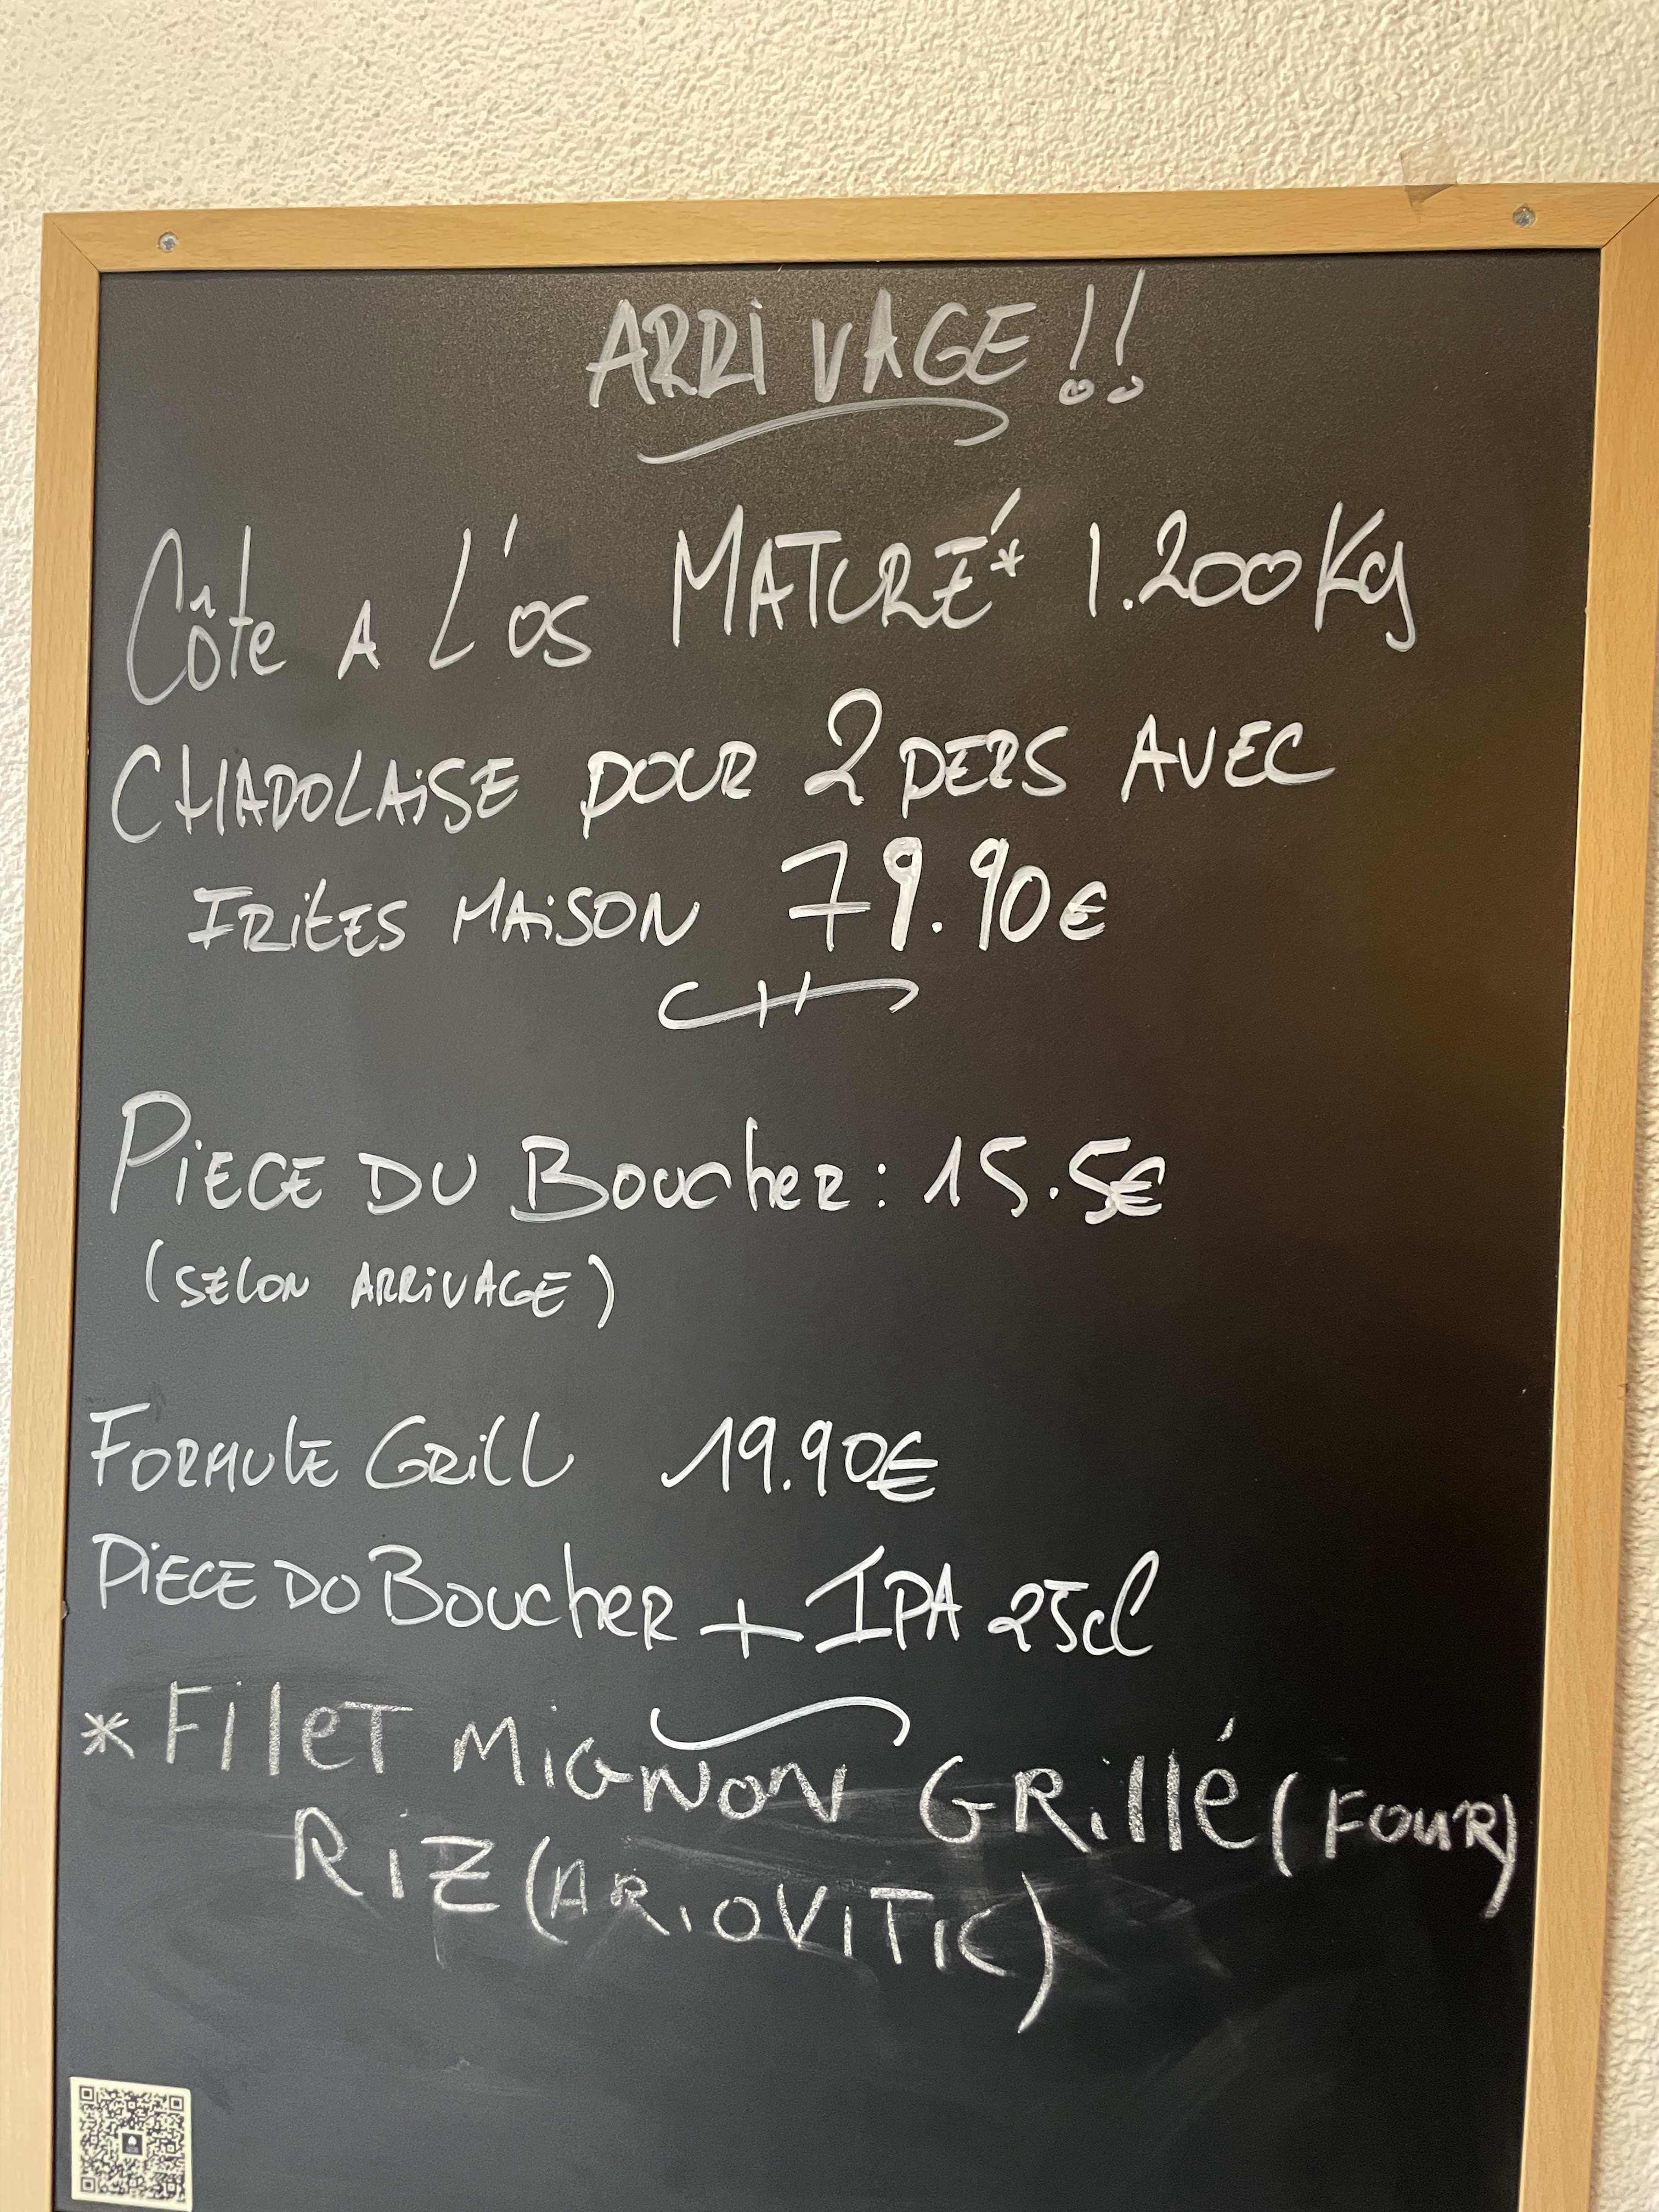 ARRIVAGE !!
Côte A L'os MATURÉ* 1.200Kg
CHAROLAISE POUR 2 PERS AVEC
FRITES MAISON 79.90€
PIECE DU BOUCHER : 15.5€
(SELON ARRIVAGE)
FORMULE GRILL 19.90€
PIECE DU BOUCHER + IPA 25cl
* FILET MIGNON GRILLÉ (FOUR)
RIZ (ARIOVITIC)